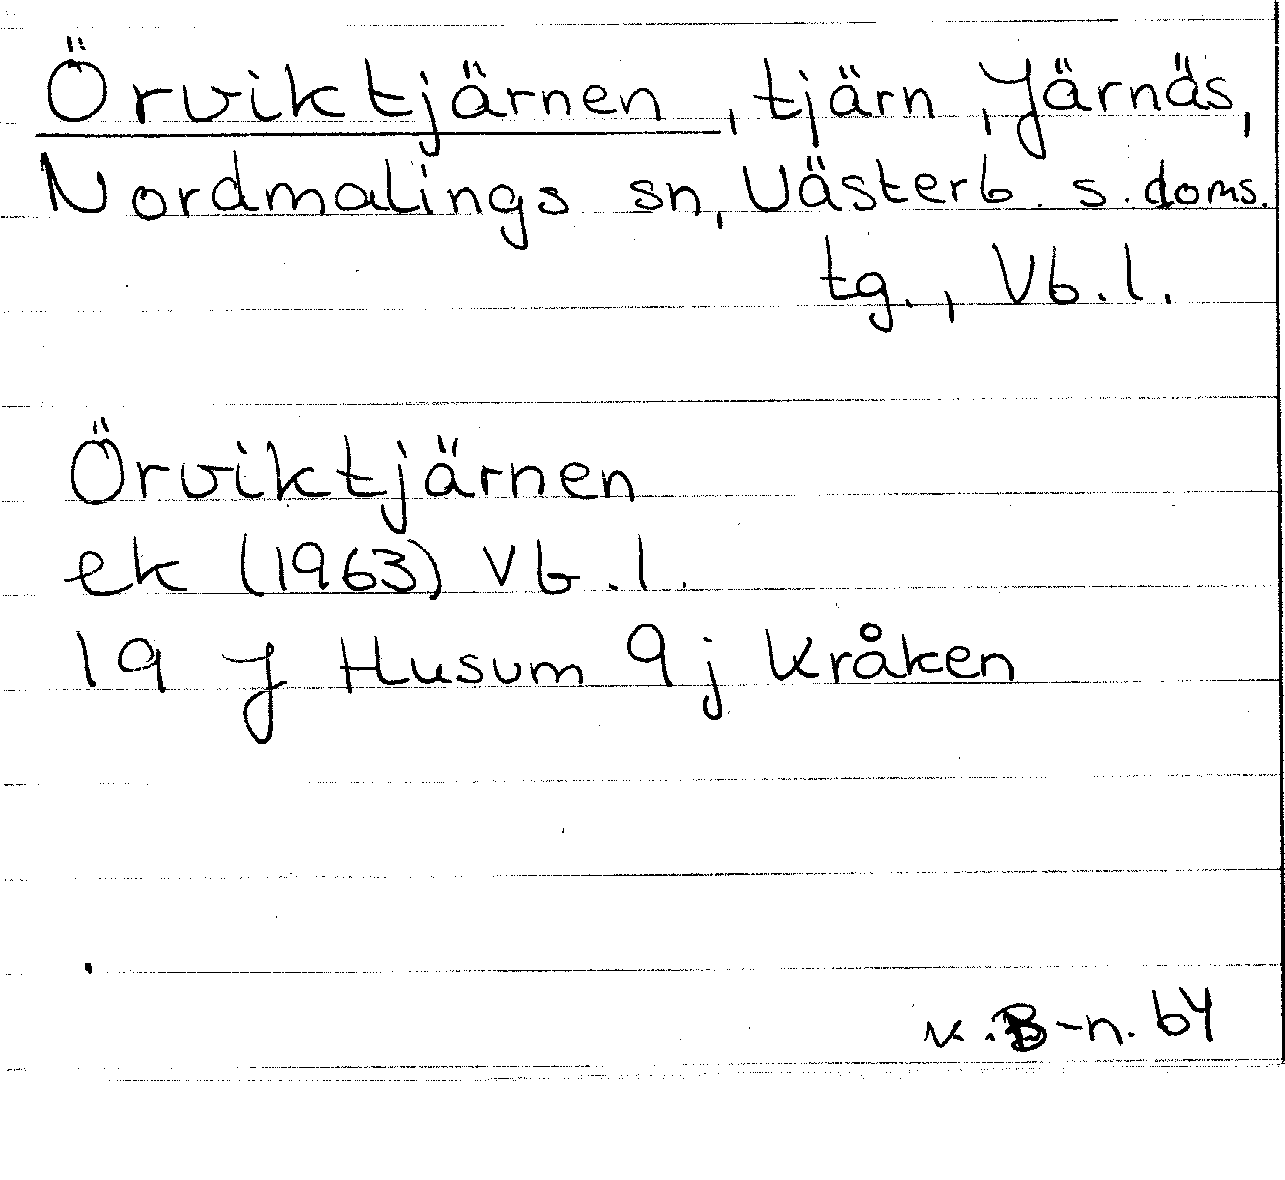 Örviktjärnen, tjärn, Järnäs,
Nordmalings sn, Västerb. s. doms.
tg., Vb.l.
Örviktjärnen
ek (1963) Vb.l.
19 J Husum 9j Kråken
K.B-n. 64